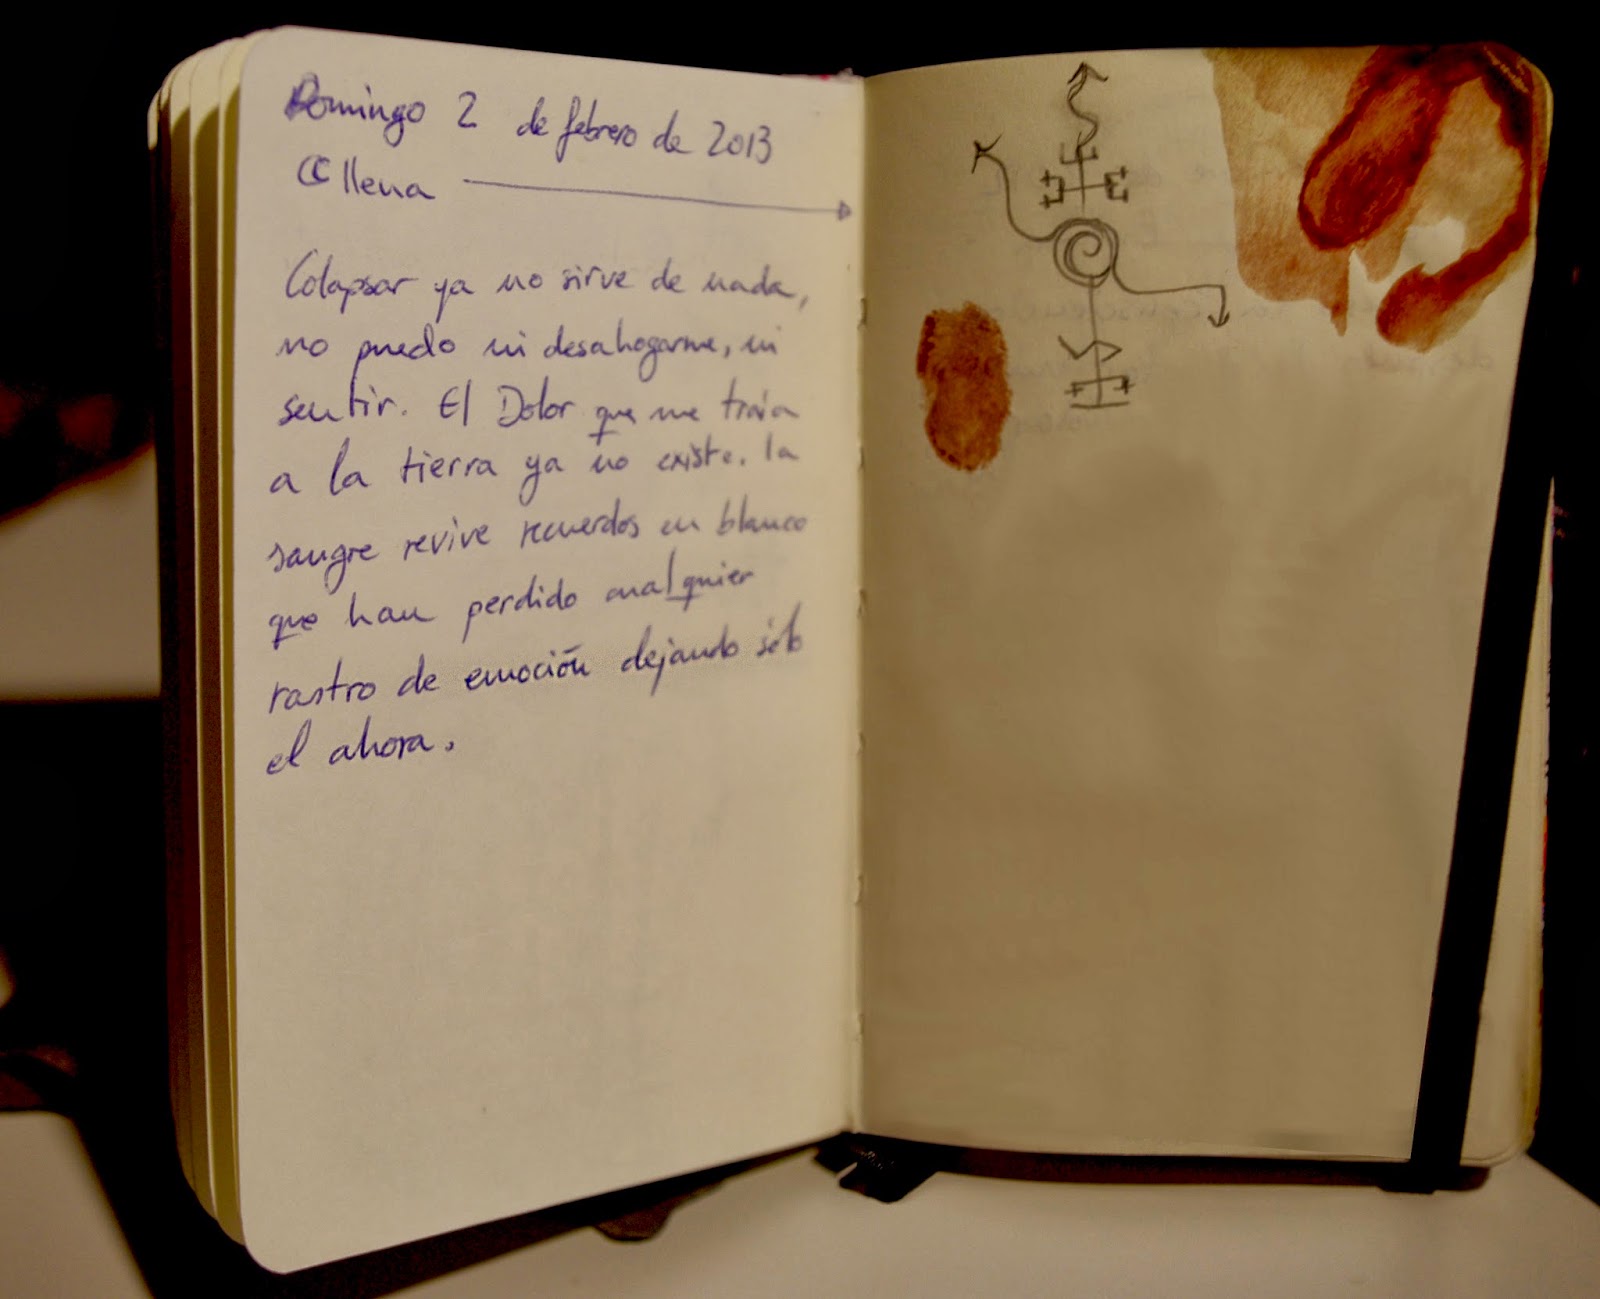 Domingo 2 de febrero de 2013
llena
Colapsar ya no sirve de nada,
no puedo ni desahogarme, ni
sentir. El Dolor que me traia
a la tierra ya no existe. la
sangre revive recuerdos en blanco
que han perdido cualquier
rastro de emoción dejando sólo
el ahora.